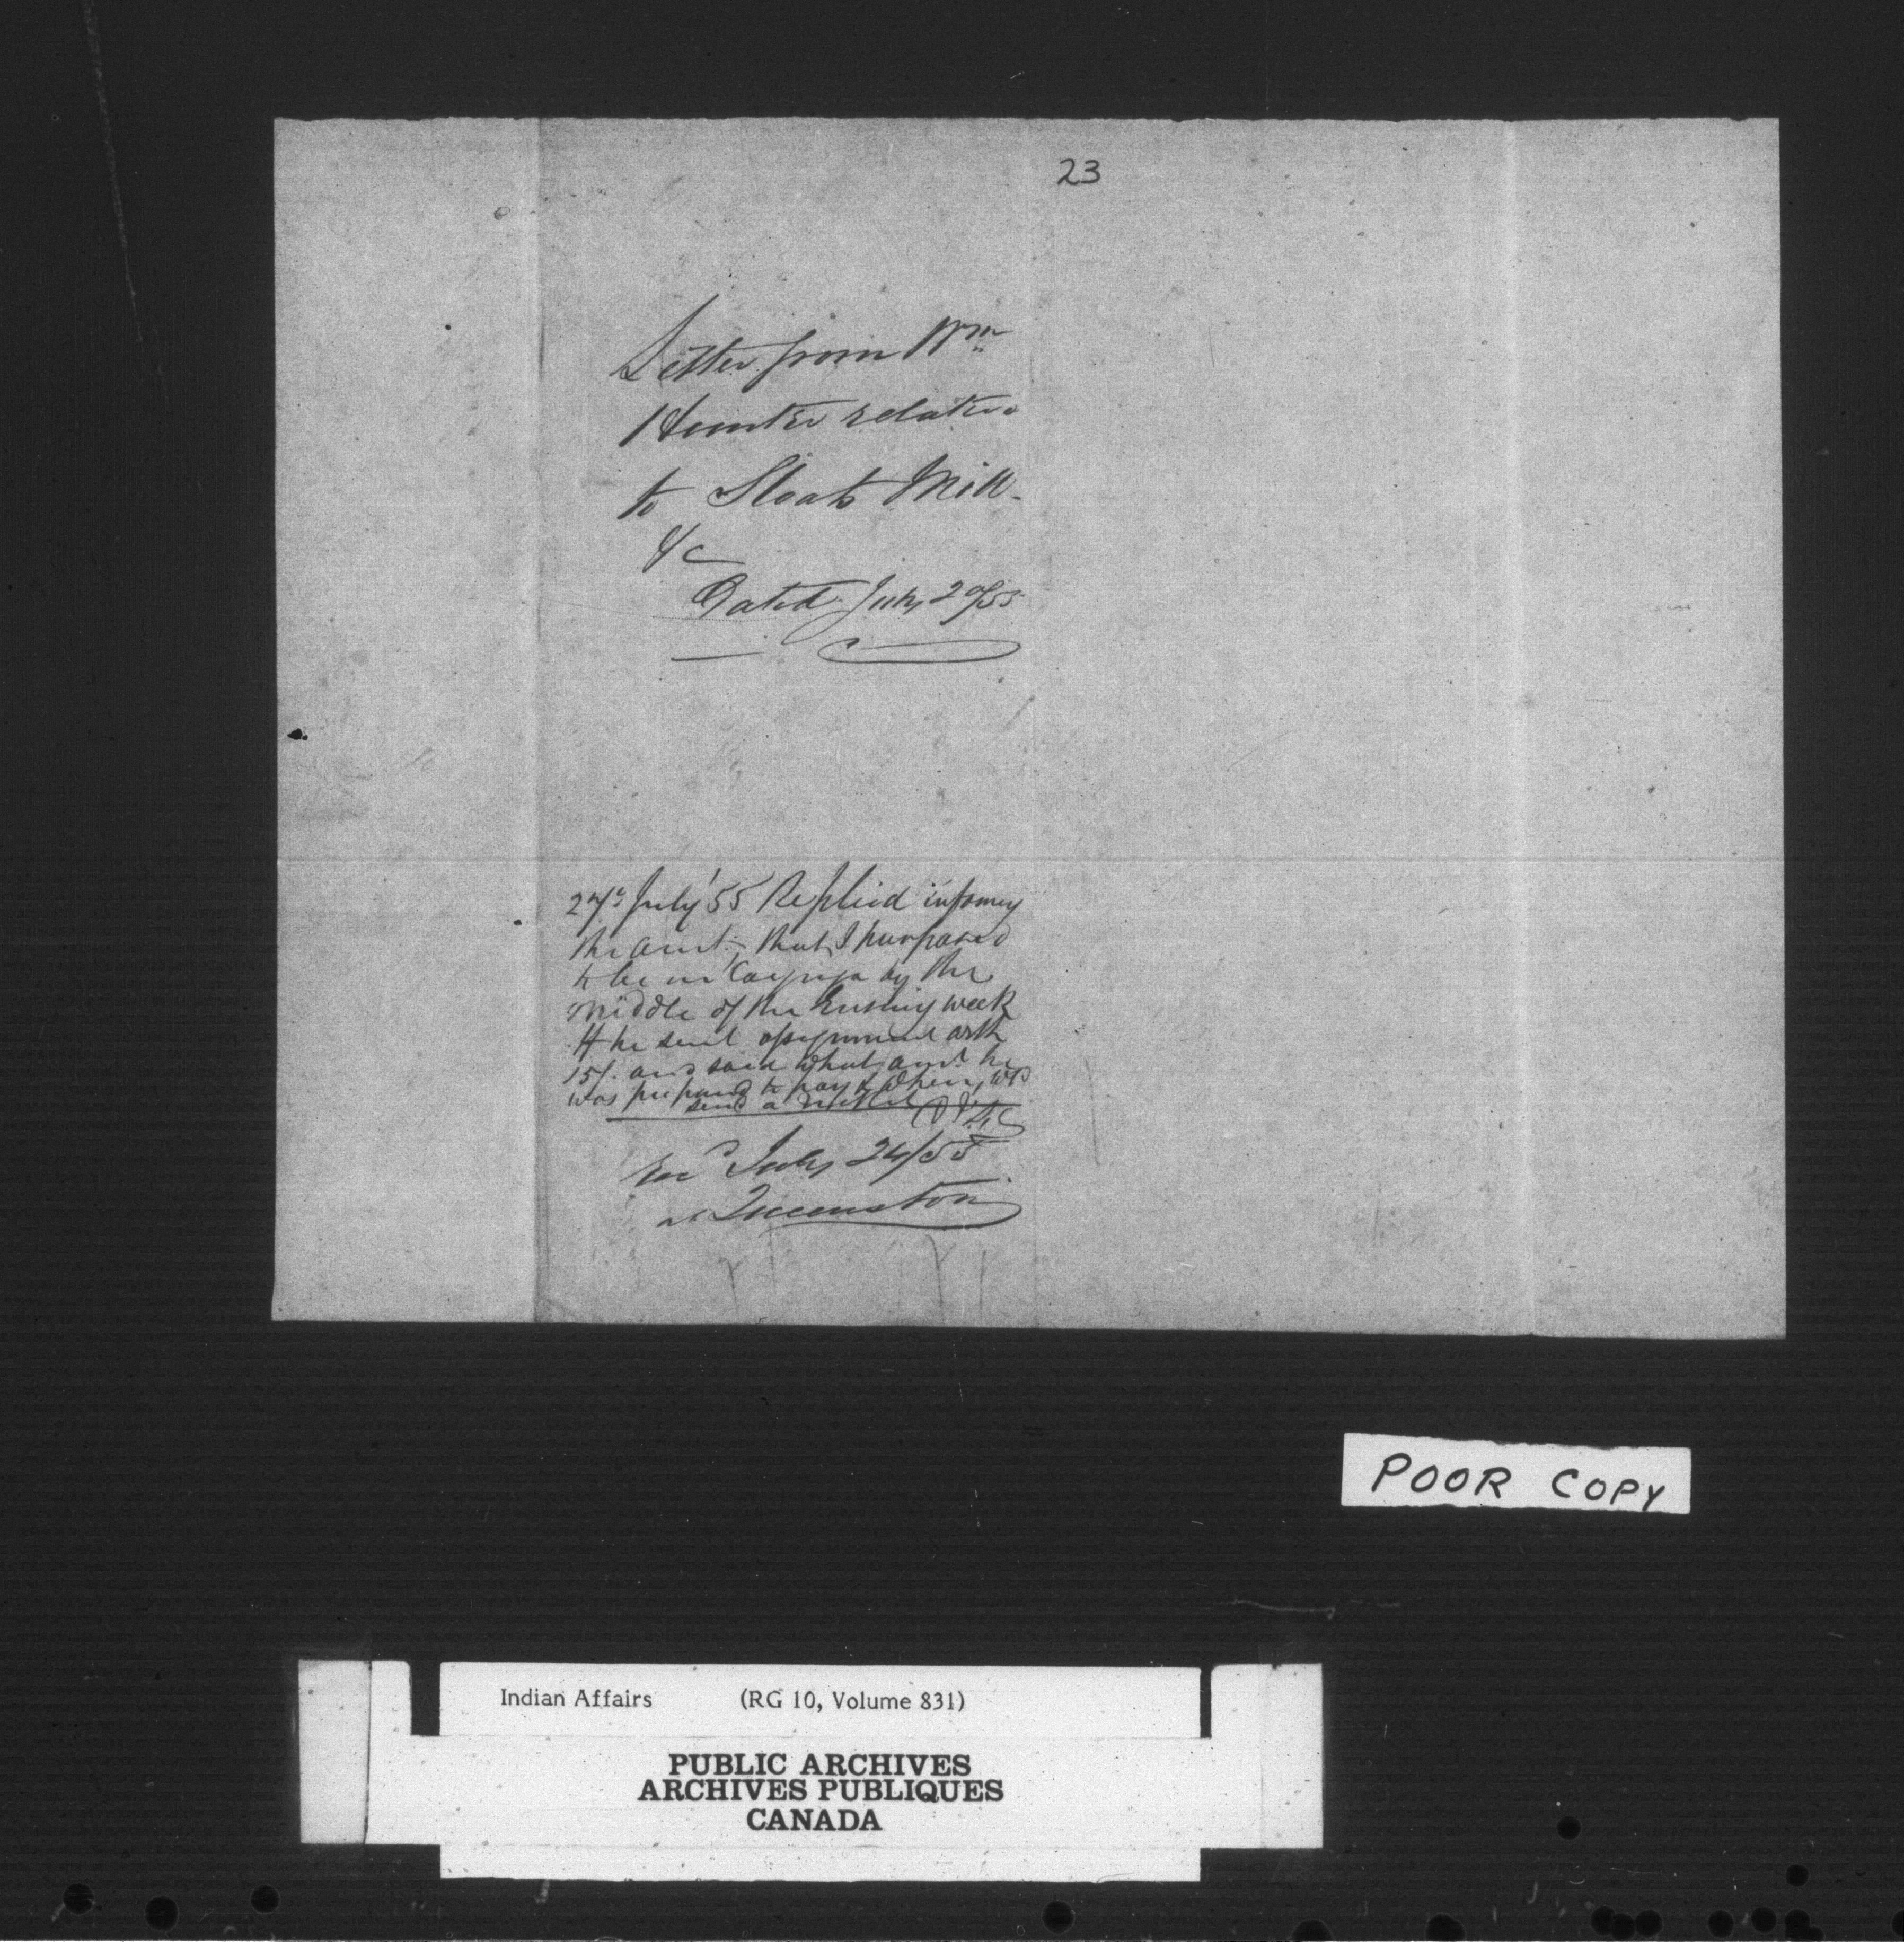 23
Letter from Wm
Hunter relative
to Sloats Mill
&c
Dated July 20/55
27th July '55 Replied informg
the amt, that I purposed
to be in Cayuga by the
middle of the Ensuing week
If he sent assignment with
15/. and said what amt he
was prepared to pay & when, wd
send a
Recd July 24/55
at Queenston
POOR COPY
Indian Affairs (RG 10, Volume 831)
PUBLIC ARCHIVES
ARCHIVES PUBLIQUES
CANADA